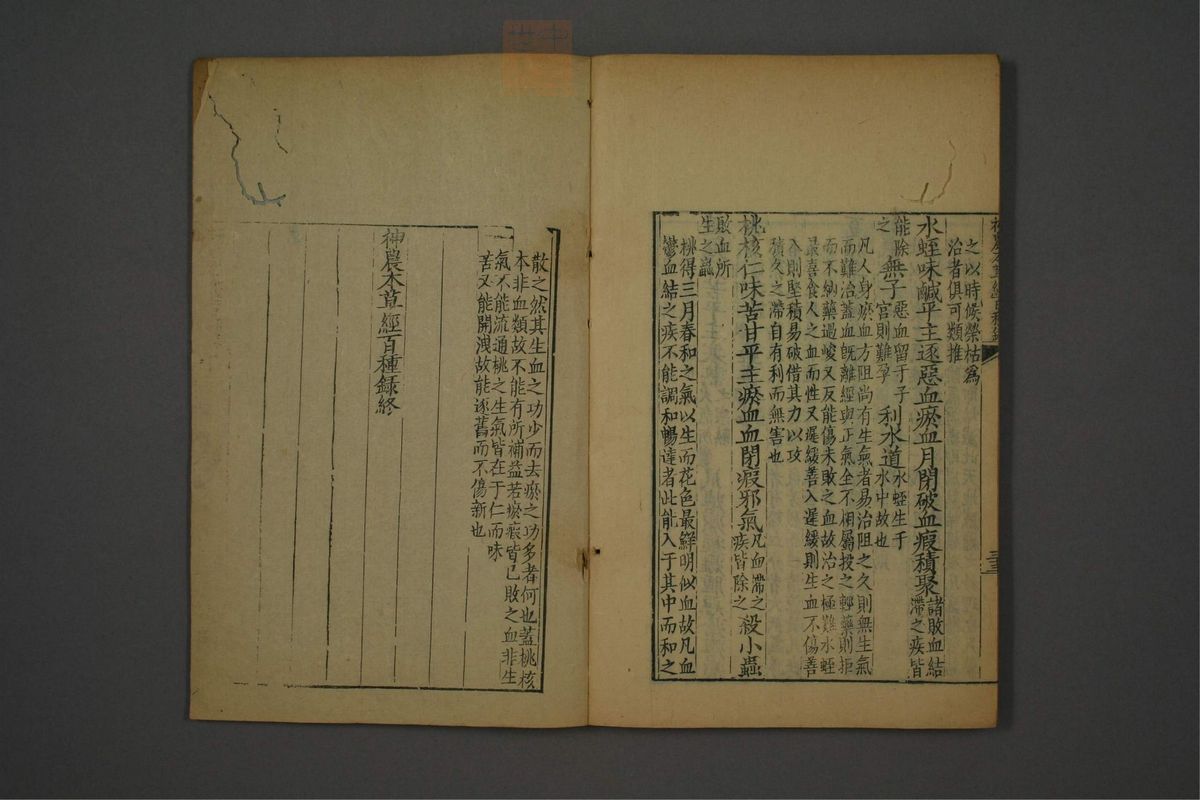 之以時候榮枯爲
治者俱可類推
水蛭味鹹平主逐惡血瘀血月閉破血瘕積聚諸敗血結
滯之疾皆
能除惡血留于子
之無子宮則難孕利水道水蛭生于
水中故也
凡人身瘀血方阻尚有生氣者易治阻之久則無生氣
而難治蓋血旣離經與正氣全不相屬投之輕藥則拒
而不納藥過峻又反能傷未敗之血故治之極難水蛭
最喜食人之血而性又遲緩善入遲緩則生血不傷善
入則堅積易破借其力以攻
積久之滯自有利而無害也
桃核仁味苦甘平主瘀血血閉瘕邪氣凡血滯之
疾皆除之殺小蟲
敗血所
生之蟲
桃得三月春和之氣以生而花色最鮮明似血故凡血
鬱血結之疾不能調和暢達者此能入于其中而和之
散之然其生血之功少而去瘀之功多者何也蓋桃核
本非血類故不能有所補益若瘀瘕皆已敗之血非生
氣不能流通桃之生氣皆在于仁而味
苦又能開洩故能逐舊而不傷新也
神農本草經百種錄終